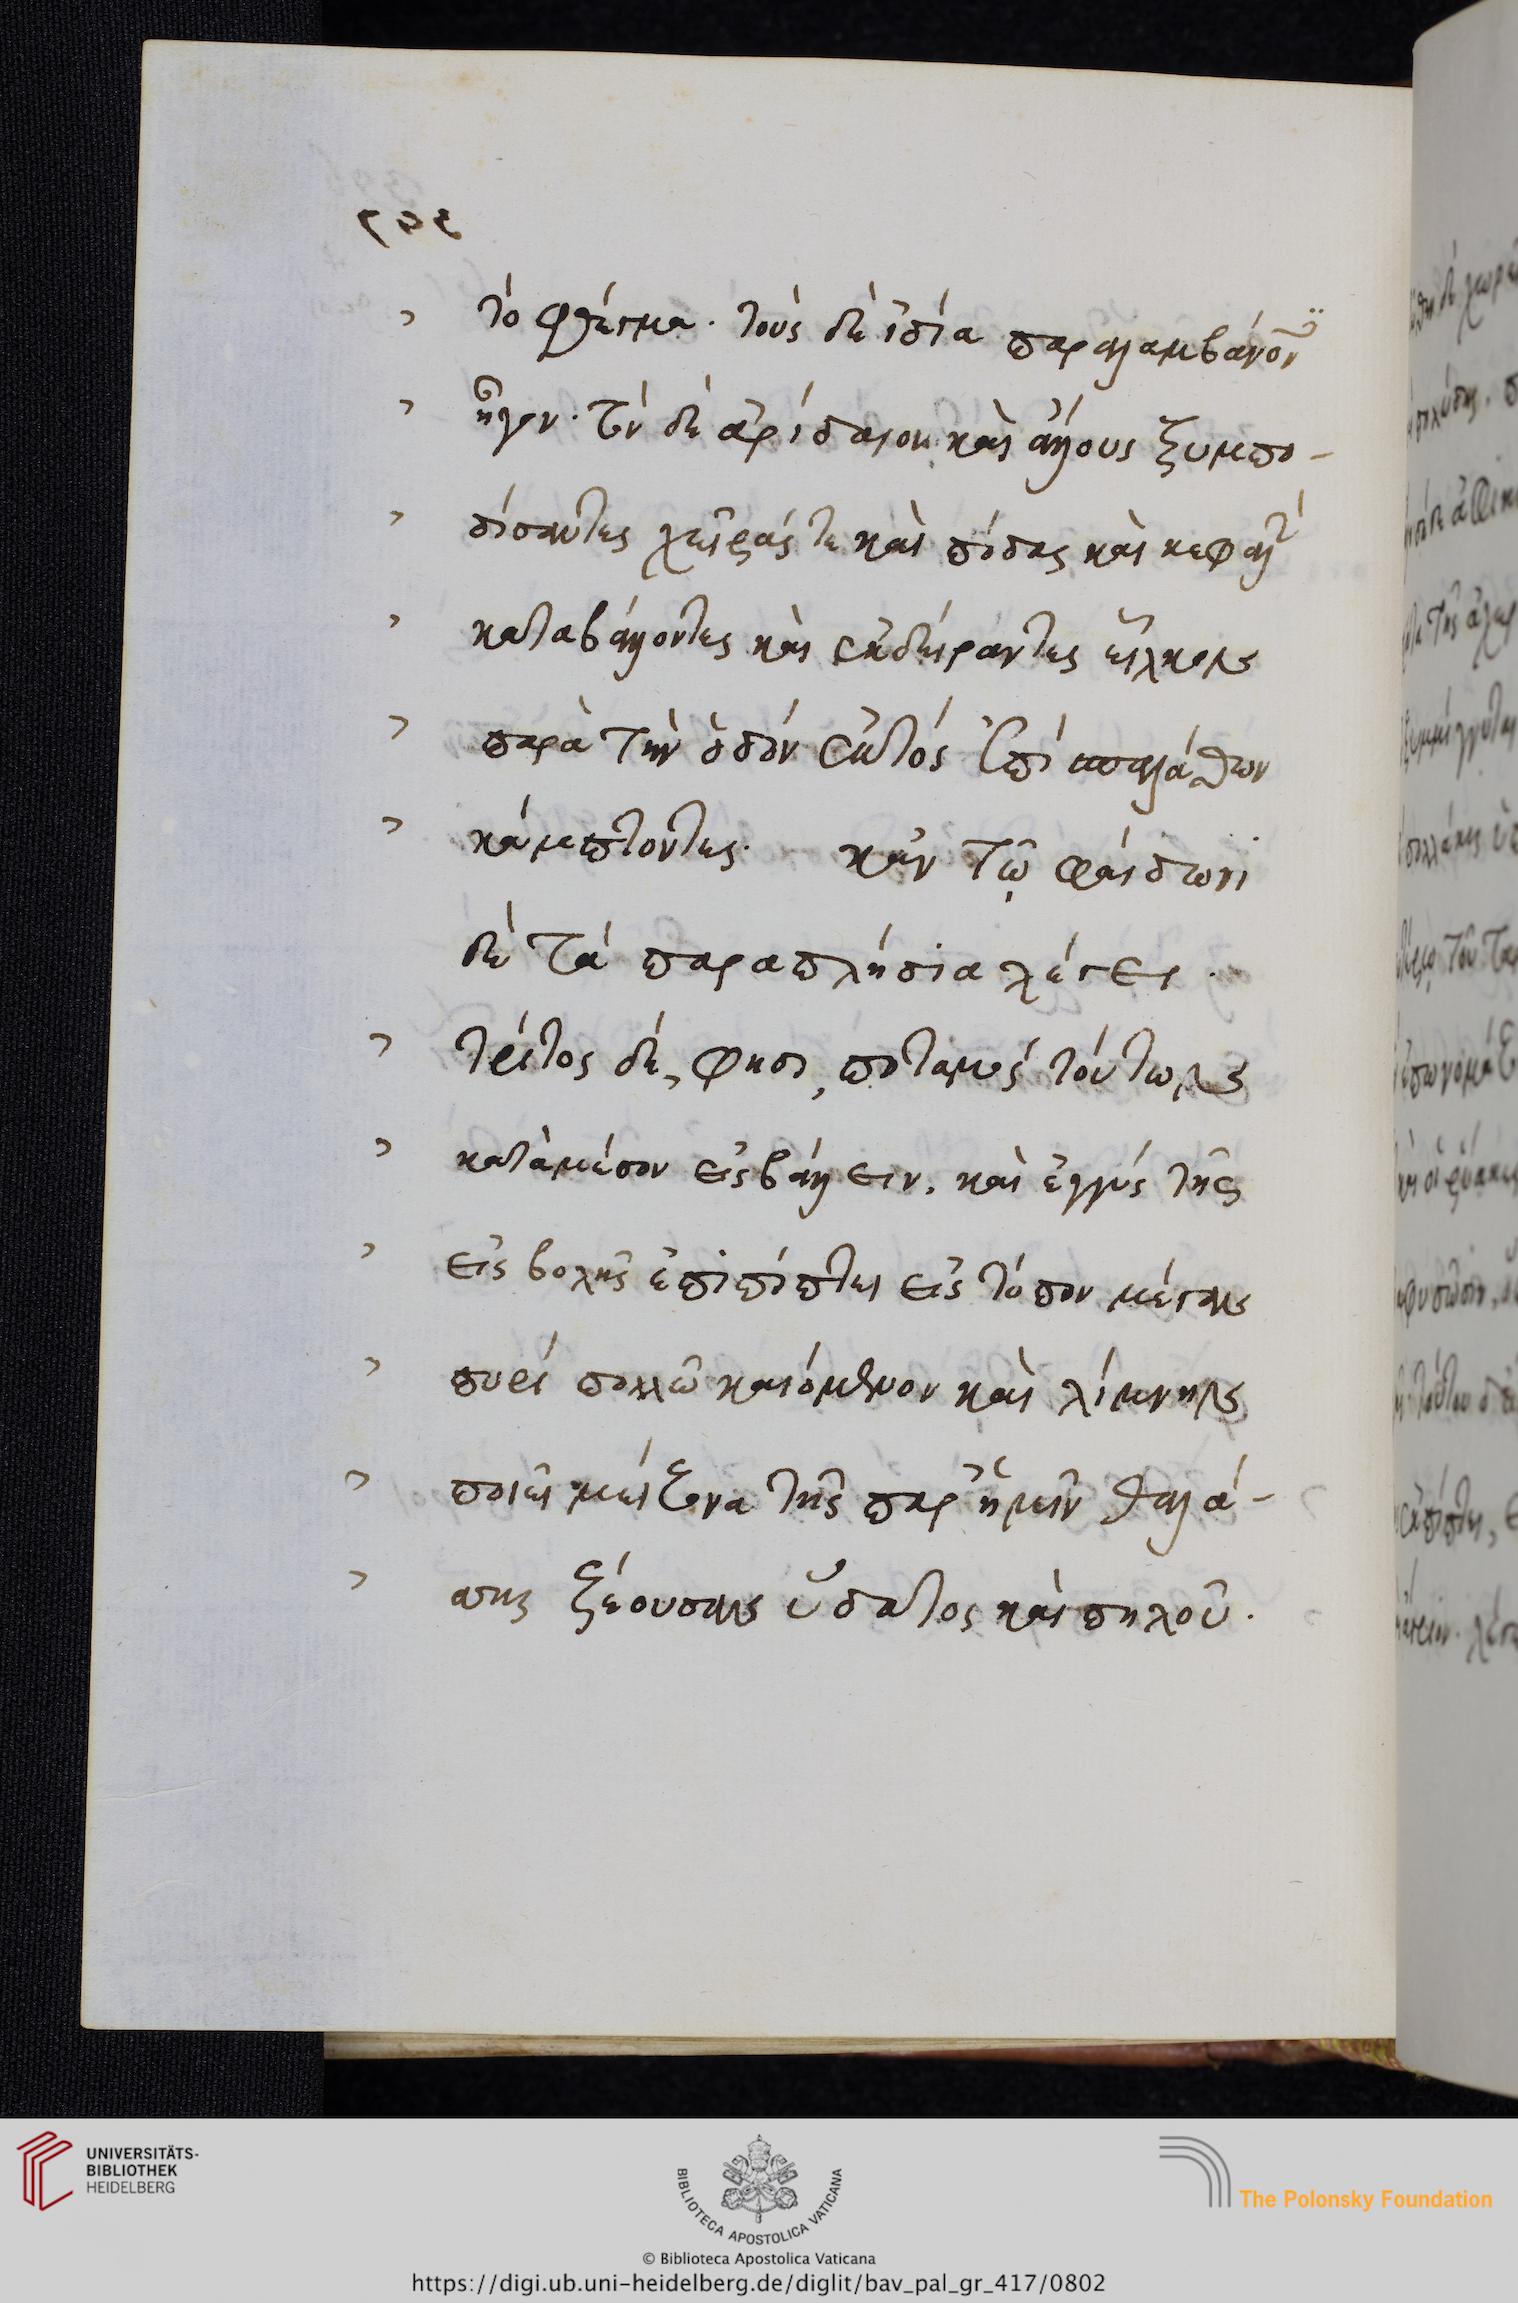 το φθέγμα. τοὺς δὲ ἰδία παραλαμβάνον
ἦγον. τὸν δὲ ἀριδαῖον καὶ ἄλλους ξυμπο-
δίσαντες χεῖράς τε καὶ πόδας καὶ κεφαλὴν
καταβάλλοντες καὶ ἐκδείραντες εἷλκον
παρὰ τὴν ὁδὸν ἐκτός ἐπὶ ασπαλάθων
κάμπτοντες. κἀν τῷ φαίδωνι
δὲ τὰ παραπλήσια λέγει.
τρίτος δέ, φησι, ποταμός τούτων
κατὰ μέσον εἰσβάλλειν. καὶ ἐγγύς τῆς
εἰσβολῆς ἐπιπίπτει εἰς τόπον μέγαν
πυρί πολλῷ καιόμενον καὶ λίμνην
ποιεῖ μείζονα τῆς παρ' ἡμῖν θαλά-
σσης ζέουσαν ὕδατος καὶ πηλοῦ.
UNIVERSITÄTS-
BIBLIOTHEK
HEIDELBERG
BIBLIOTECA APOSTOLICA VATICANA
The Polonsky Foundation
© Biblioteca Apostolica Vaticana
https://digi.ub.uni-heidelberg.de/diglit/bav_pal_gr_417/0802